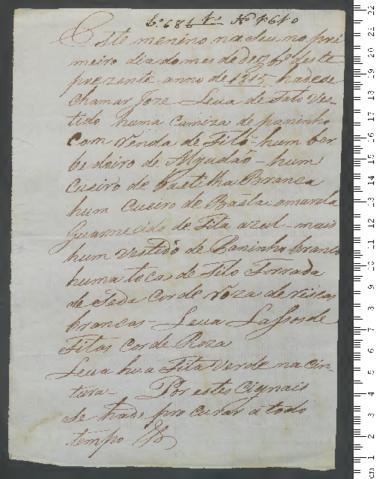 Nº 1610
Este menino naseu no pri
meiro dia do mes de dezbrº deste
prezente anno de 1815, hadese
chamar Joze - Leva de Fato Ves
tido huma Camiza de paninho
com Renda de Filó - hum ber
bedoiro de Algudaõ - hum
Cueiro de Baetilha Branca
hum Cueiro de Baeta amarela
Guarnecido de Fita azul - mais
hum Vestido de Paninho branco
huma toca de Filo Forrada
de Seda Cor de roza de riscas
brancas - Leva Lassos de
Fitas Cor de Roza
Leva hua Fita Verde na cin
tura - Por estes Cignais
se hade procurar a todo
tempo
cm 1 2 3 4 5 6 7 8 9 10 11 12 13 14 15 16 17 18 19 20 21 22